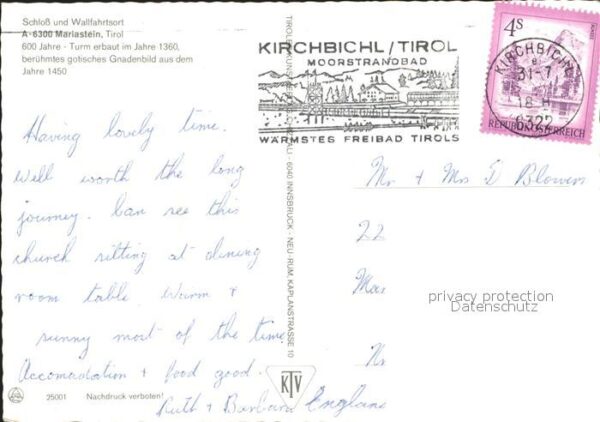 Schloß und Wallfahrtsort
A-6300 Mariastein, Tirol
600 Jahre - Turm erbaut im Jahre 1360,
berühmtes gotisches Gnadenbild aus dem
Jahre 1450
KIRCHBICHL/TIROL
MOORSTRANDBAD
WÄRMSTES FREIBAD TIROLS
4S
REPUBLIK ÖSTERREICH
KIRCHBICHL
31-7
18-H
6322
Having lovely time.
Well worth the long
journey. Can see this
church sitting at dining
room table. Warm +
sunny most of the time
Accomadation + food good.
Ruth + Barbara
Mr + Mrs D Blowers
22
England
privacy protection
Datenschutz
6040 INNSBRUCK - NEU-RUM, KAPLANSTRASSE 10
KTV
25001 Nachdruck verboten!